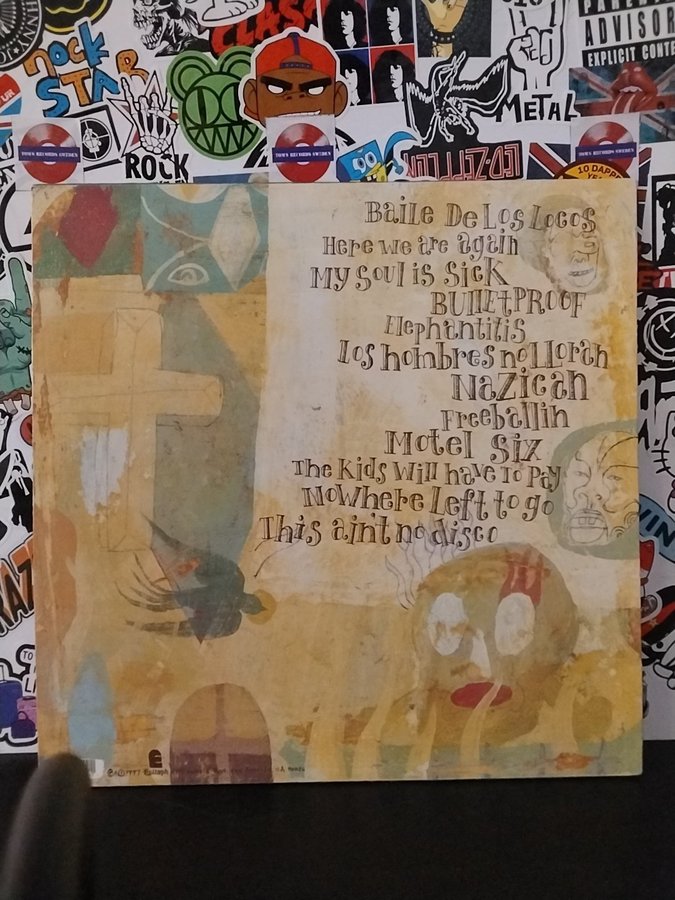 rock
STAR
CLASH
METAL
ADVISOR
EXPLICIT CONTE
ROCK
TOM'S RECORDS SWEDEN
TOM'S RECORDS SWEDEN
TOM'S RECORDS SWEDEN
LED-ZEPPELIN
10 DAPP
Baile De Los Locos
Here we are again
My soul is sick
BulletPROOF
Elephantitis
Los hombres no lloran
Nazican
Freeballin
Motel Six
The Kids Will have To Pay
Nowhere Left to go
This ain't no disco
E
1997 Epitaph